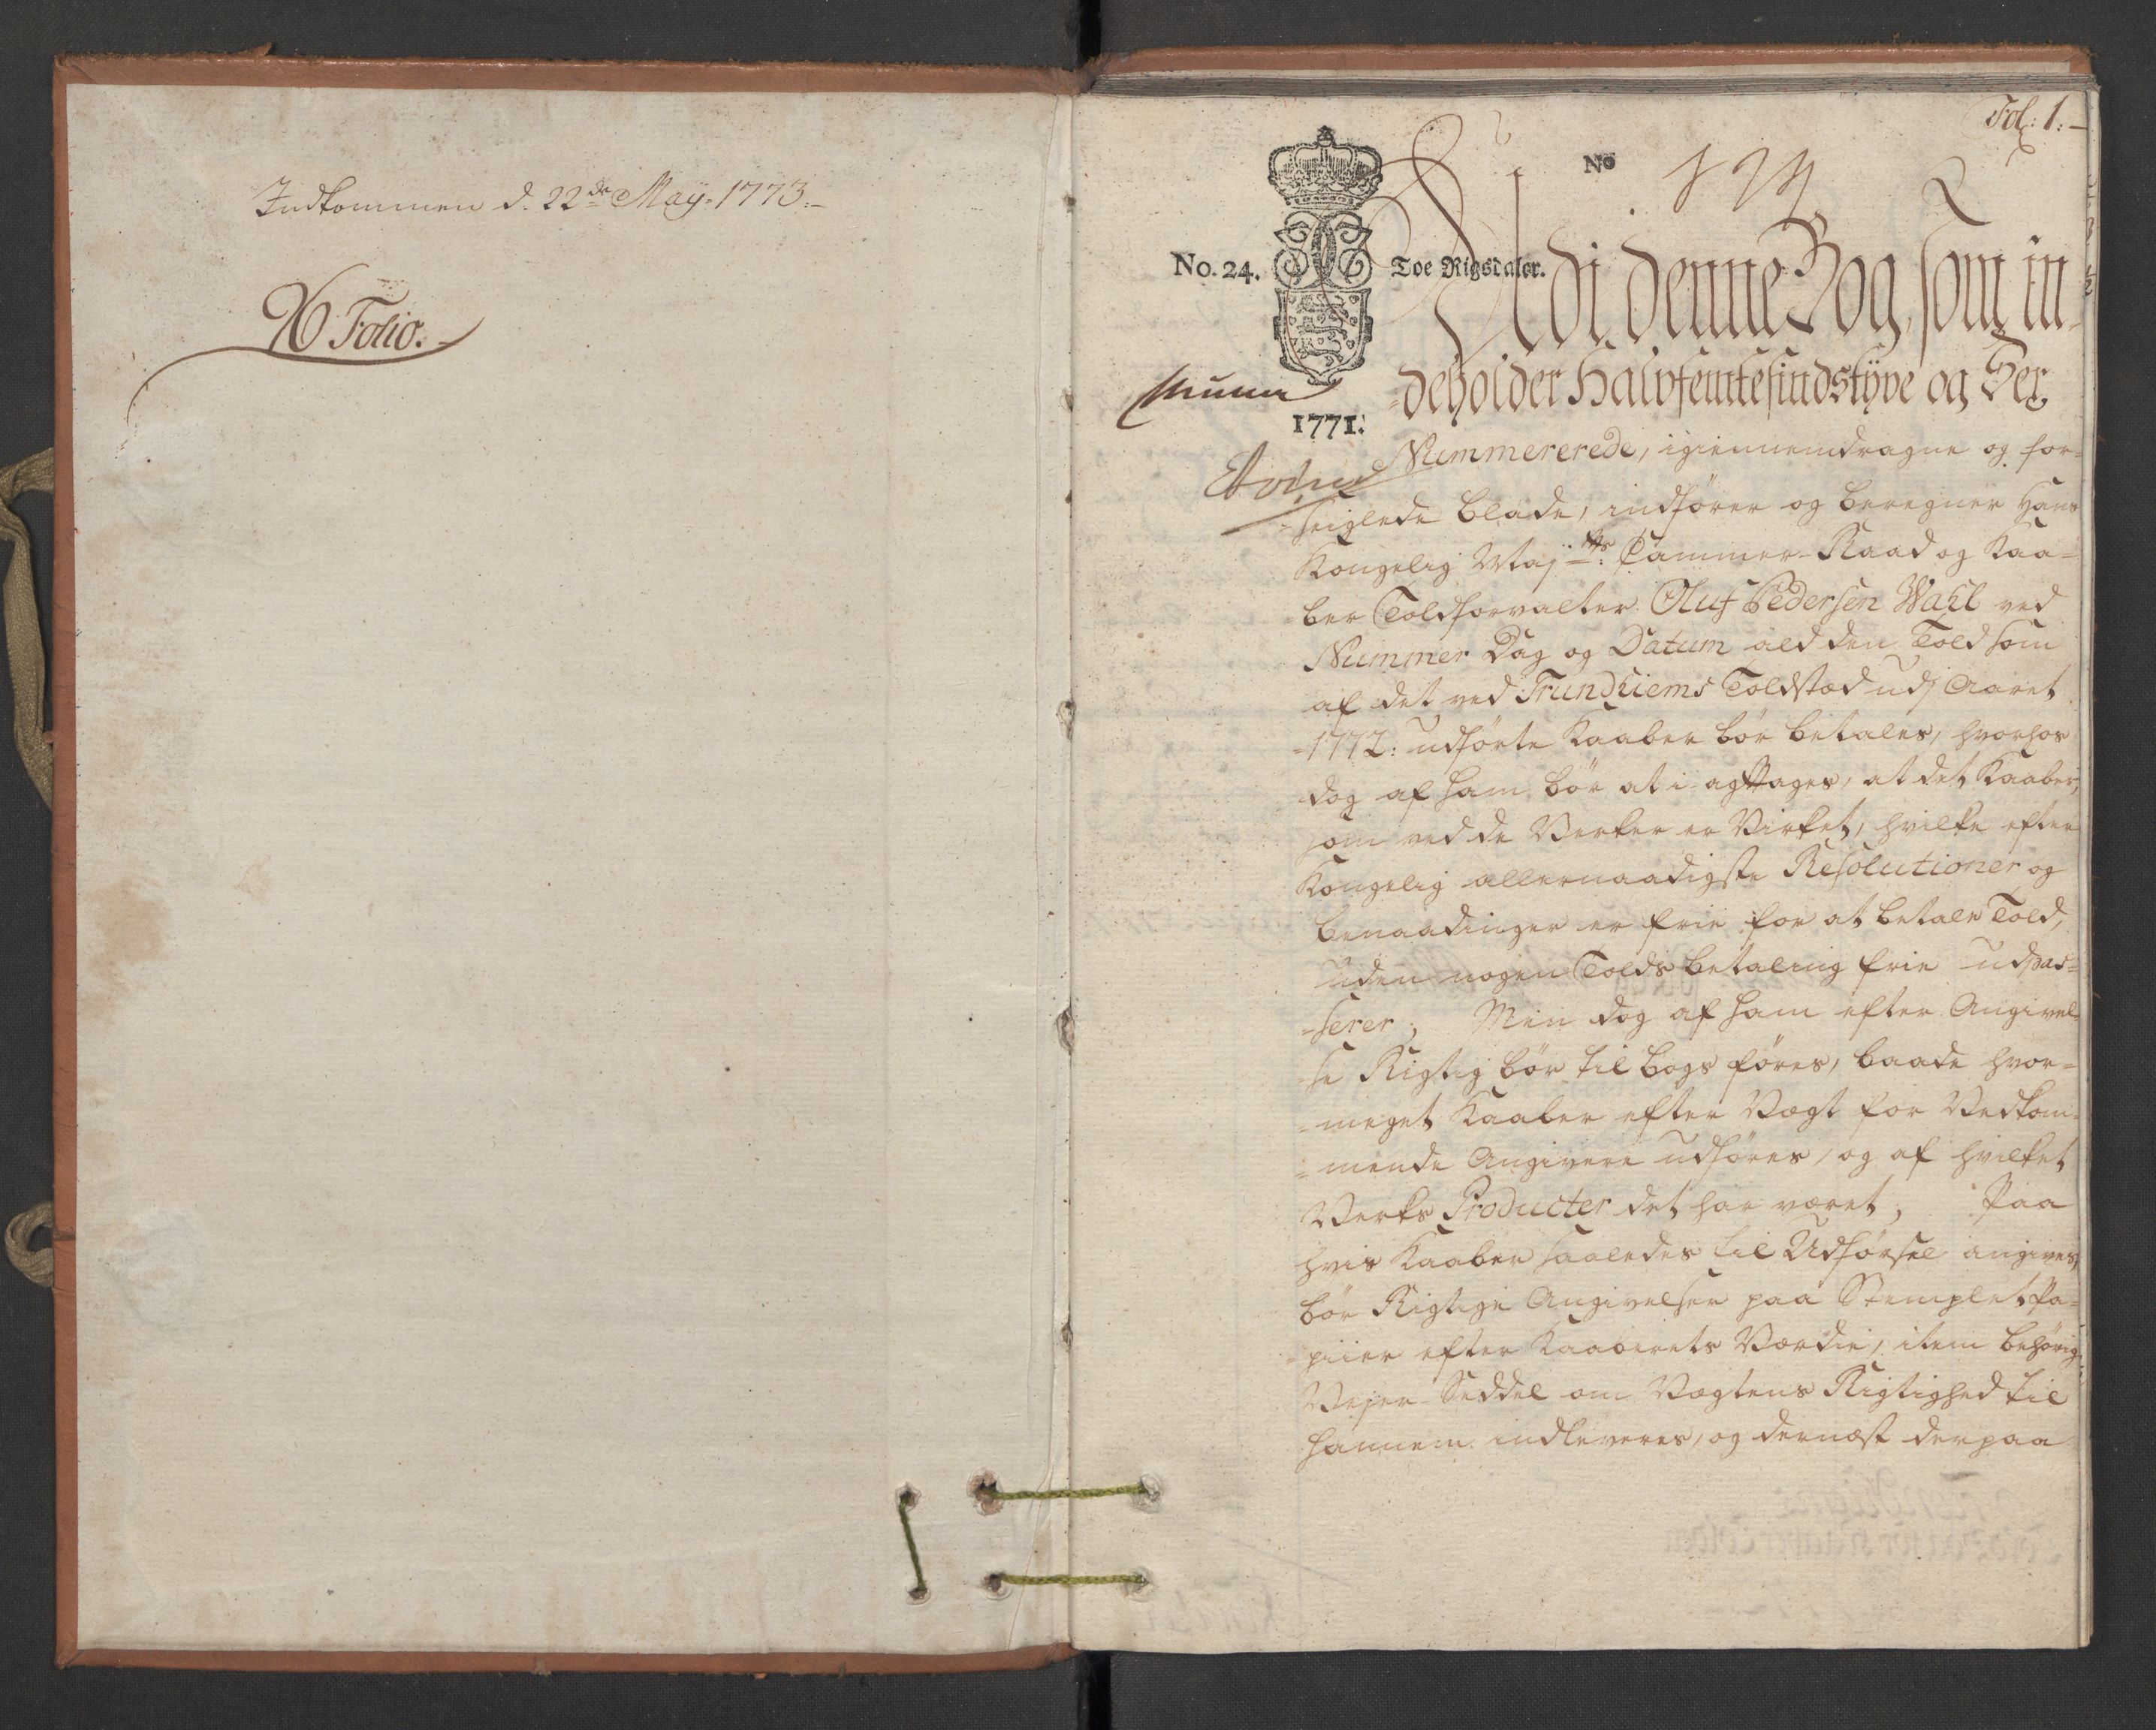 Indkommen d. 22de May. 1773.-
96 Folio.
Fol: 1.-
No
No. 24.
Toe Rigsdaler.
1771.
Udi denne Bog, som in-
deholder Halvfemtesindstÿve og Sex
Nummererede, igiennemdragne og for-
seiglede Blade, indfører og beregner Hans
Kongelig Majts: Cammer-Raad og Kaa-
ber Toldforvalter Oluf Pedersen Wahl ved
Nummer Dag og Datum ald den Told som
af det ved Trundhiems Toldsted udj Aaret
1772: udførte Kaaber bør betales, hvorhos
dog af ham bør at i agttages, at det Kaaber,
som ved de Verker er Virket, hvilke efter
Kongelig allernaadigste Resolutioner og
benaadinger er frie for at betale Told,
uden nogen Tolds betaling frie udpas-
serer, Men dog af ham efter Angivel-
se Rigtig bør til bogs føres, baade hvor-
meget Kaaber efter Vægt for Vedkom-
mende Angivere udføres, og af hvilket
Verks Producter det har været, Paa
hvis Kaaber saaledes til Udførsel angives,
bør Rigtige Angivelser paa Stemplet Pa-
piier efter Kaaberets Værdie, item behørig
Vejer Seddel om Vægtens Rigtighed til
hannem indleveres, og dernæst derpaa